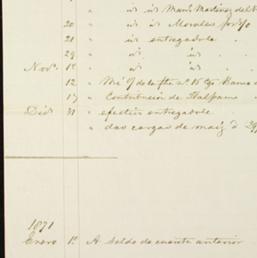 " is is Man. Martinez del
20 " is is Morales por fo
21 " is entregadole
29 " is is
Nov. 1º " is is
12 "
17 " Contribucion de Tlalpam
Dic. 31 " efectivo entregadole
" dos cargas de maiz á
1871
Enero 1º A Saldo de cuenta anterior